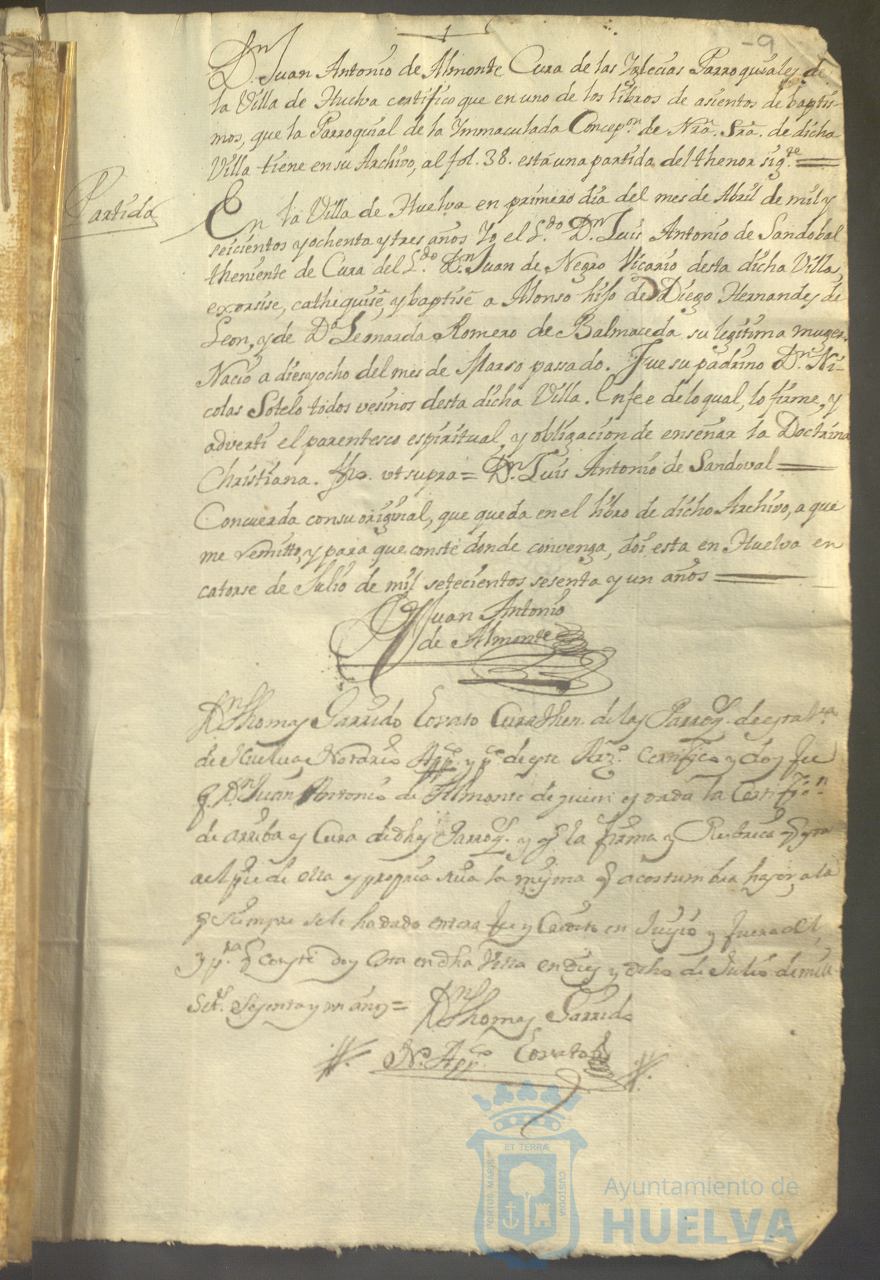 -9
Dn. Juan Antonio de Almonte Cura de las Yglecias Parroquiales de
la Villa de Huelva certifico que en uno de los libros de asientos de baptis-
mos, que la Parroquial de la Immaculada Concepn. de Nra. Sra. de dicha
Villa tiene en su Archivo, al fol. 38. está una partida del thenor sigte.
Partida
En la Villa de Huelva en primero dia del mes de Abril de mil y
seicientos y ochenta y tres años Yo el Ldo. Dn. Luis Antonio de Sandobal
theniente de Cura del Ldo. Dn. Juan de Negro Vicario desta dicha Villa,
exorsisé, cathequisé, y baptisé a Alonso hijo de Diego Hernandes de
Leon, y de Da. Leonarda Romero de Balmaceda su legitima muger.
Nació a diesyocho del mes de Marso passado. Fue su padrino Dn. Ni-
colas Sotelo todos vesinos desta dicha Villa. En fee de lo qual, lo firme, y
advertí el parentesco espiritual, y obligacion de enseñar la Doctrina
Christiana. fho. ut supra = Dn. Luis Antonio de Sandoval
Concuerda con su original, que queda en el libro de dicho Archivo, a que
me remitto, y para que conste donde convenga, doi esta en Huelva en
catorse de Julio de mil setecientos sesenta y un años
Dn Juan Antonio
de Almonte
Dn. Thomas Garrido Lovato Cura then. de las Parroqs. de esta Va.
de Huelva y Notario Appco. y pco. de este Arzo. Certifico y doy fee
q Dn. Juan Antonio de Almonte de quien es dada la Certifon.
de arriba es Cura de dhas Parroqs. y q la firma y Rubrica q esta
al pie de ella es propria suya la misma q acostumbra haser, a la
q siempre se le ha dado entera fee y Credito en Juysio y fuera del,
y pa. q conste doy esta en dha Villa en dies y ocho de Julio de mill
Sets. sesenta y un años =
Dn. Thomas Garrido
No. Appco. Lovato
ET TERRÆ
PORTUS MARIS
CUSTODIA
Ayuntamiento de
HUELVA